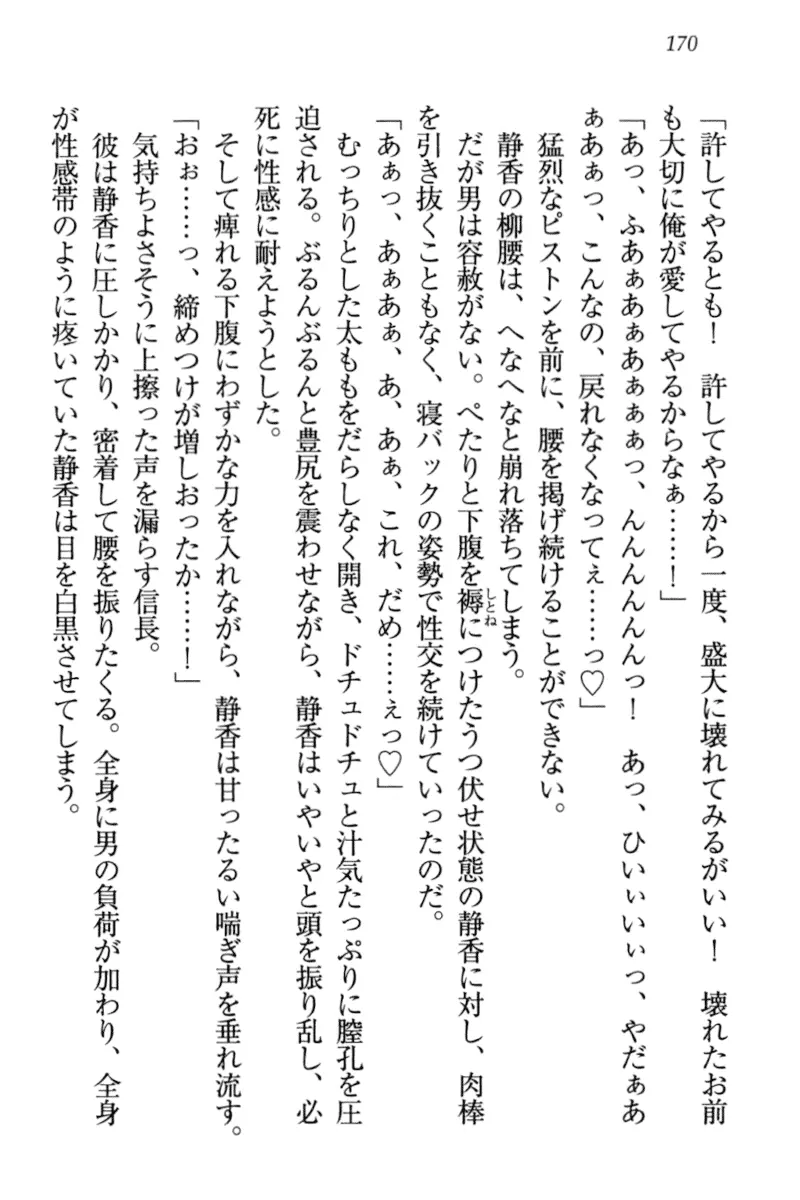 170
「許してやるとも！　許してやるから一度、盛大に壊れてみるがいい！　壊れたお前
も大切に俺が愛してやるからなぁ……！」
「あっ、ふあぁあぁあぁぁぁっ、んんんんんんっ！　あっ、ひいぃいぃっ、やだぁあ
ぁあぁっ、こんなの、戻れなくなってぇ……っ♡」
猛烈なピストンを前に、腰を掲げ続けることができない。
静香の柳腰は、へなへなと崩れ落ちてしまう。
だが男は容赦がない。ぺたりと下腹を褥につけたうつ伏せ状態の静香に対し、肉棒
を引き抜くこともなく、寝バックの姿勢で性交を続けていったのだ。
「あぁっ、あぁあぁ、あ、あぁ、これ、だめ……ぇっ♡」
むっちりとした太ももをだらしなく開き、ドチュドチュと汁気たっぷりに膣孔を圧
迫される。ぶるんぶるんと豊尻を震わせながら、静香はいやいやと頭を振り乱し、必
死に性感に耐えようとした。
そして痺れる下腹にわずかな力を入れながら、静香は甘ったるい喘ぎ声を垂れ流す。
「おぉ……っ、締めつけが増しおったか……！」
気持ちよさそうに上擦った声を漏らす信長。
彼は静香に圧しかかり、密着して腰を振りたくる。全身に男の負荷が加わり、全身
が性感帯のように疼いていた静香は目を白黒させてしまう。
しとね